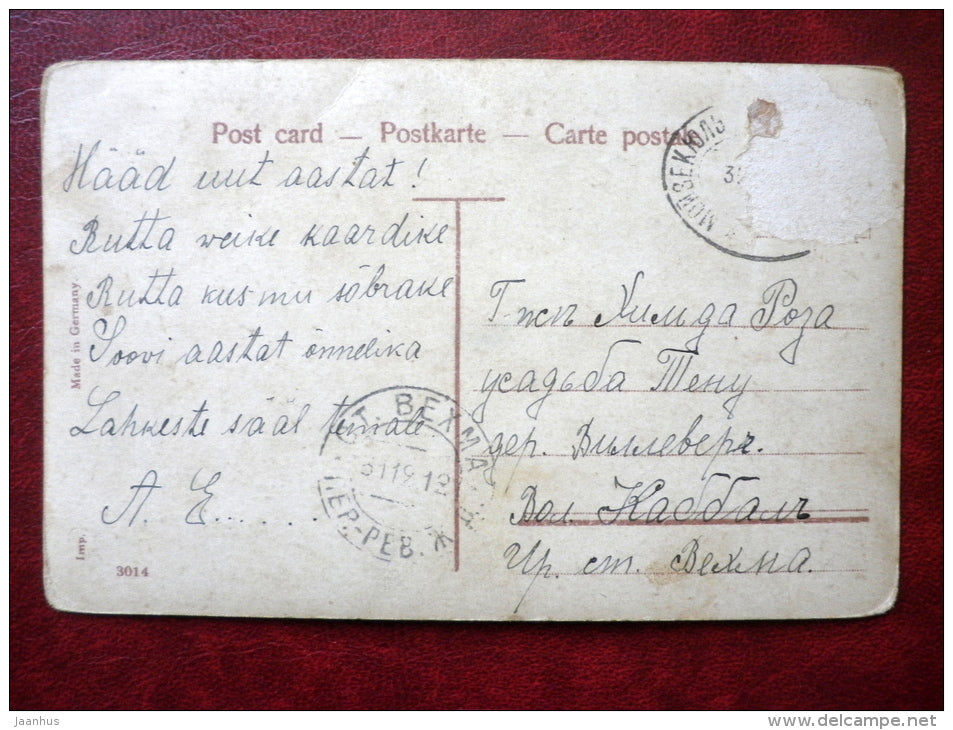 Post card — Postkarte — Carte postale
Hääd uut aastat!
Rutta weike kaardike
Rutta kus mu sõbrake
Soovi aastat õnnelika
Lahkeste sääl temale
A. E......
Made in Germany.
Imp.
3014
МОЙЗЕКЮЛЬ
СТ. ВЕХМА
ПЕР-РЕВ.
Г-жѣ Хильда Роза
усадьба Тену
дер. Виллевере.
Вол. Каббалъ
Чр. ст. Вехма.
jaanhus
www.delcampe.net